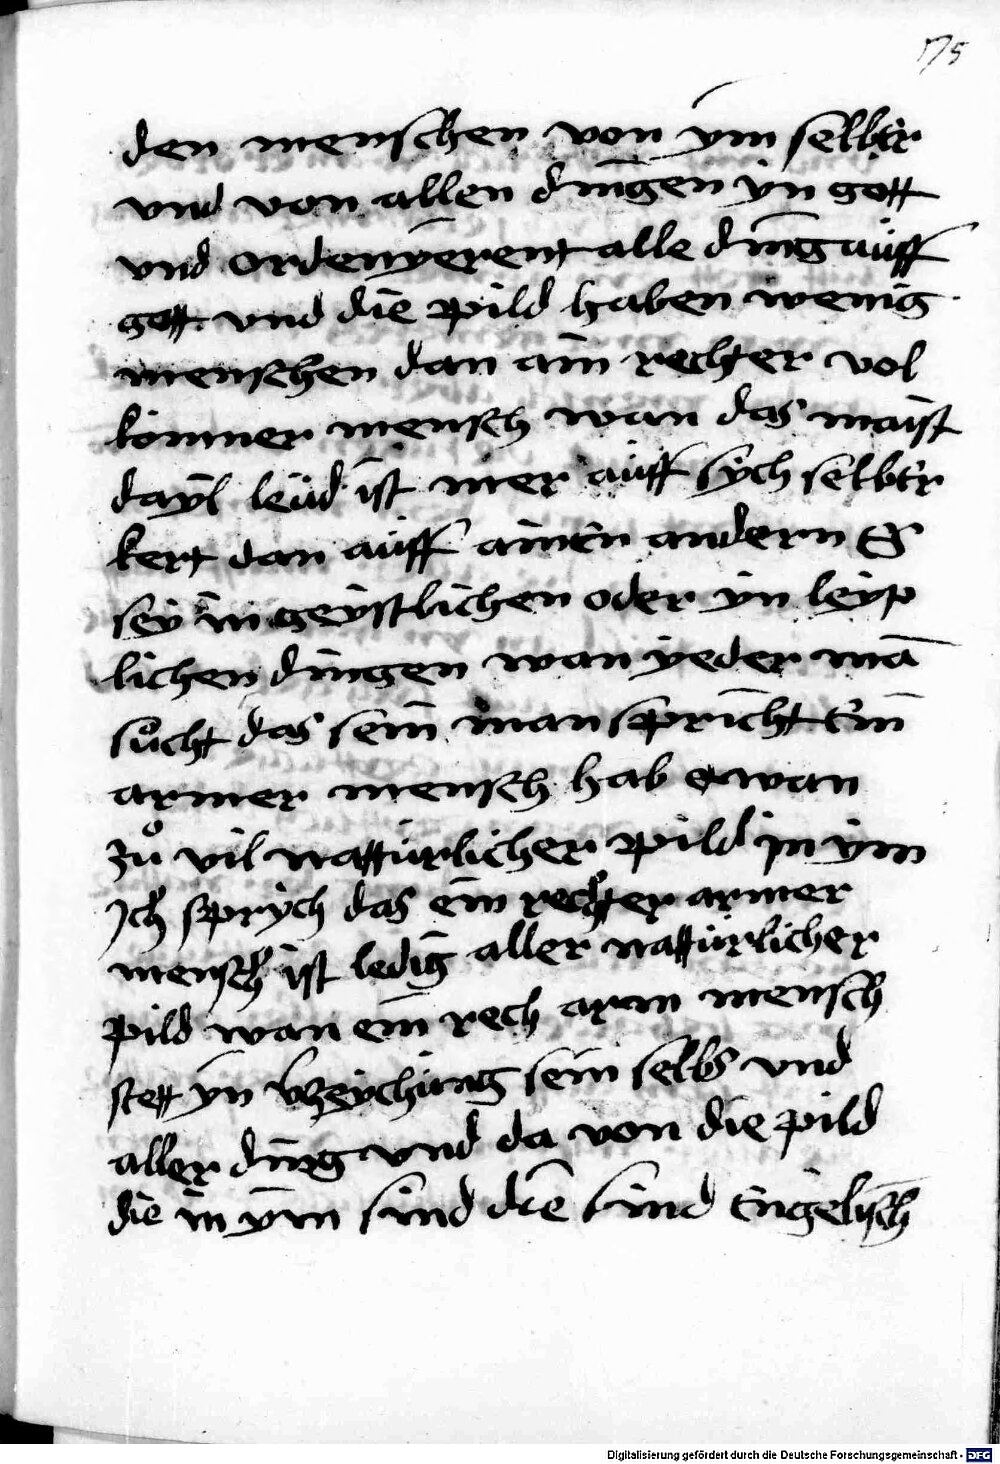 175
den menschen von ym selbtr
vnd von allen dingen yn gott
vnd ordenyerent alle ding aüff
gott vnd die pild haben wenig
menschen dan ain rechter vol
komner mensch wan das maist
dayl leüd ist mer aüff sych selbtr
kert dan aüff ainen andern Es
sey in geystlichen oder yn leyp
lichen dingen wan yeder mā
sůcht das sein man spricht Ein
armer mensch hab etwan
zů vil nattürlicher pild in ym
Ich sprych das ein rechter armer
mensch ist ledig aller nattürlicher
pild wan ein rech arm mensch
stett yn sein selbs vnd
aller ding vnd da von die pild
die in ym sind die sind Engelisch
Digitalisierung gefördert durch die Deutsche Forschungsgemeinschaft - DFG